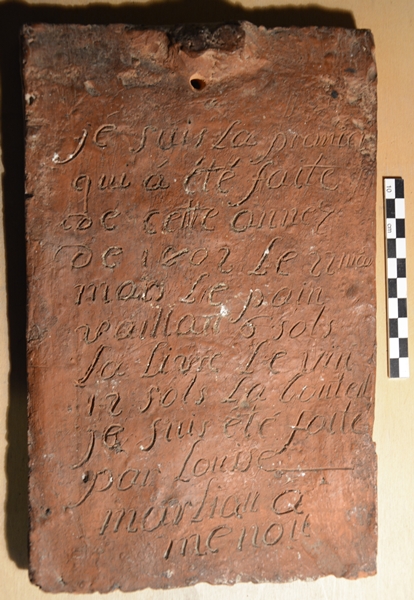 je suis La premier
qui á été faite
de cette année
de 1802 Le
mars Le pain
vaillan 6 sols
La Livre Le vin
12 sols La Bouteil
je suis été faite
par Louise
martian a
menou
10 cm